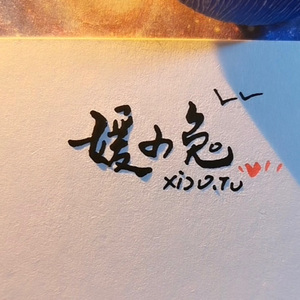 媛小兔
xiao.Tu